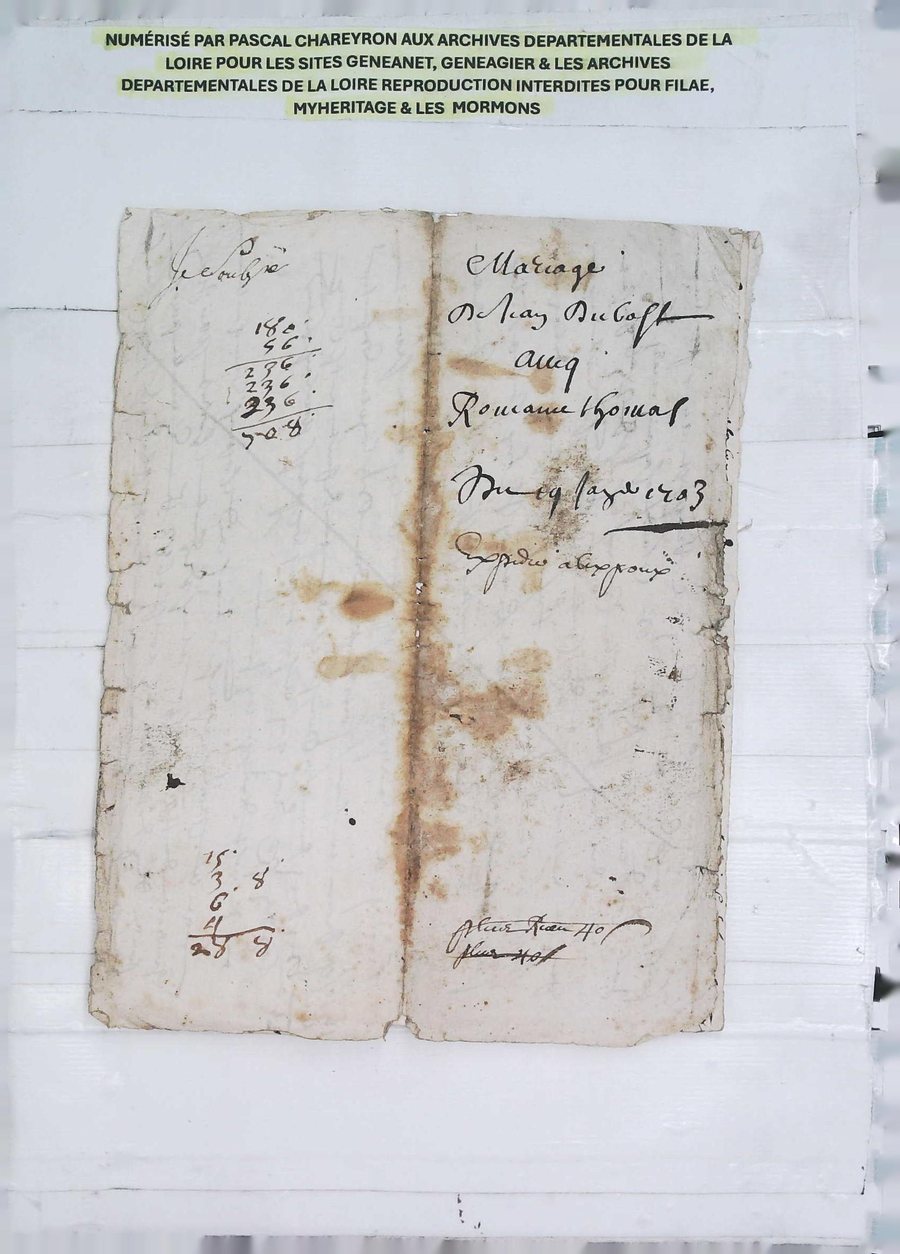 NUMÉRISÉ PAR PASCAL CHAREYRON AUX ARCHIVES DEPARTEMENTALES DE LA
LOIRE POUR LES SITES GENEANET, GENEAGIER & LES ARCHIVES
DEPARTEMENTALES DE LA LOIRE REPRODUCTION INTERDITES POUR FILAE,
MYHERITAGE & LES MORMONS
180
56
236
236
236
708
15
3 8
6
4
28 8
Mariage
De Jean Dubost
avecq
Romaine thomas
Du 19 1703
Expedié
40